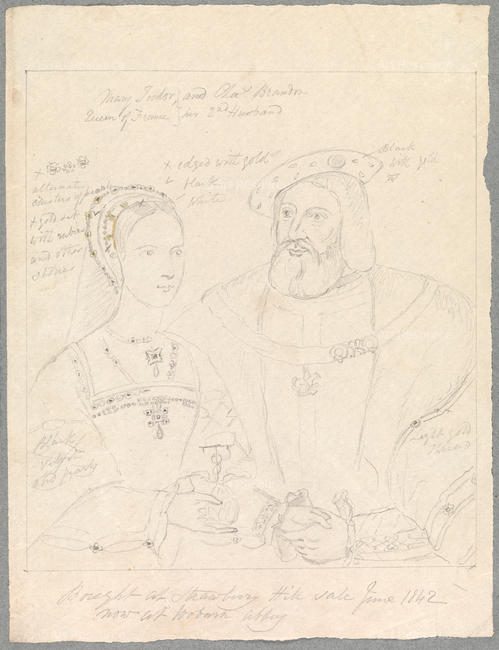 Mary Tudor } and Chas Brandon
Queen of France } her 2nd Husband
x edged with gold
black
White
Black
with gold
x
alternate
clusters of pearls
x gold set
with rubies
and other
stones
Black
Velvet
and pearls
light gold
thread
Bought at Strawberry Hill sale June 1842
now at Woburn Abbey